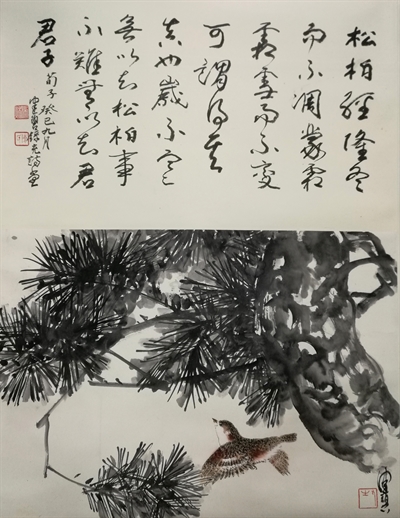 松柏經隆冬
而不凋蒙霜
雪而不變
可謂得其
真也歲不寒
無以知松柏事
不難無以知君
君子 荀子 癸巳九月